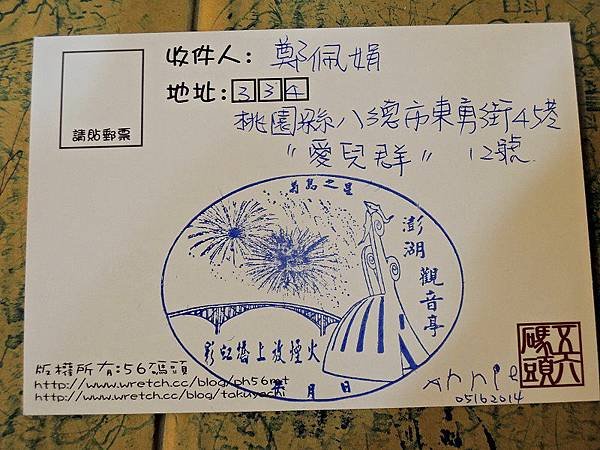 收件人: 鄭佩娟
地址: 334
請貼郵票
桃園縣八德市東勇街45巷
"愛兒群" 12號
菊島之星
澎湖 觀音亭
彩虹橋上放煙火
月 日
版權所有:56碼頭
http://www.wretch.cc/blog/ph56net
http://www.wretch.cc/blog/takuyachi
Annie
05162014
五六碼頭